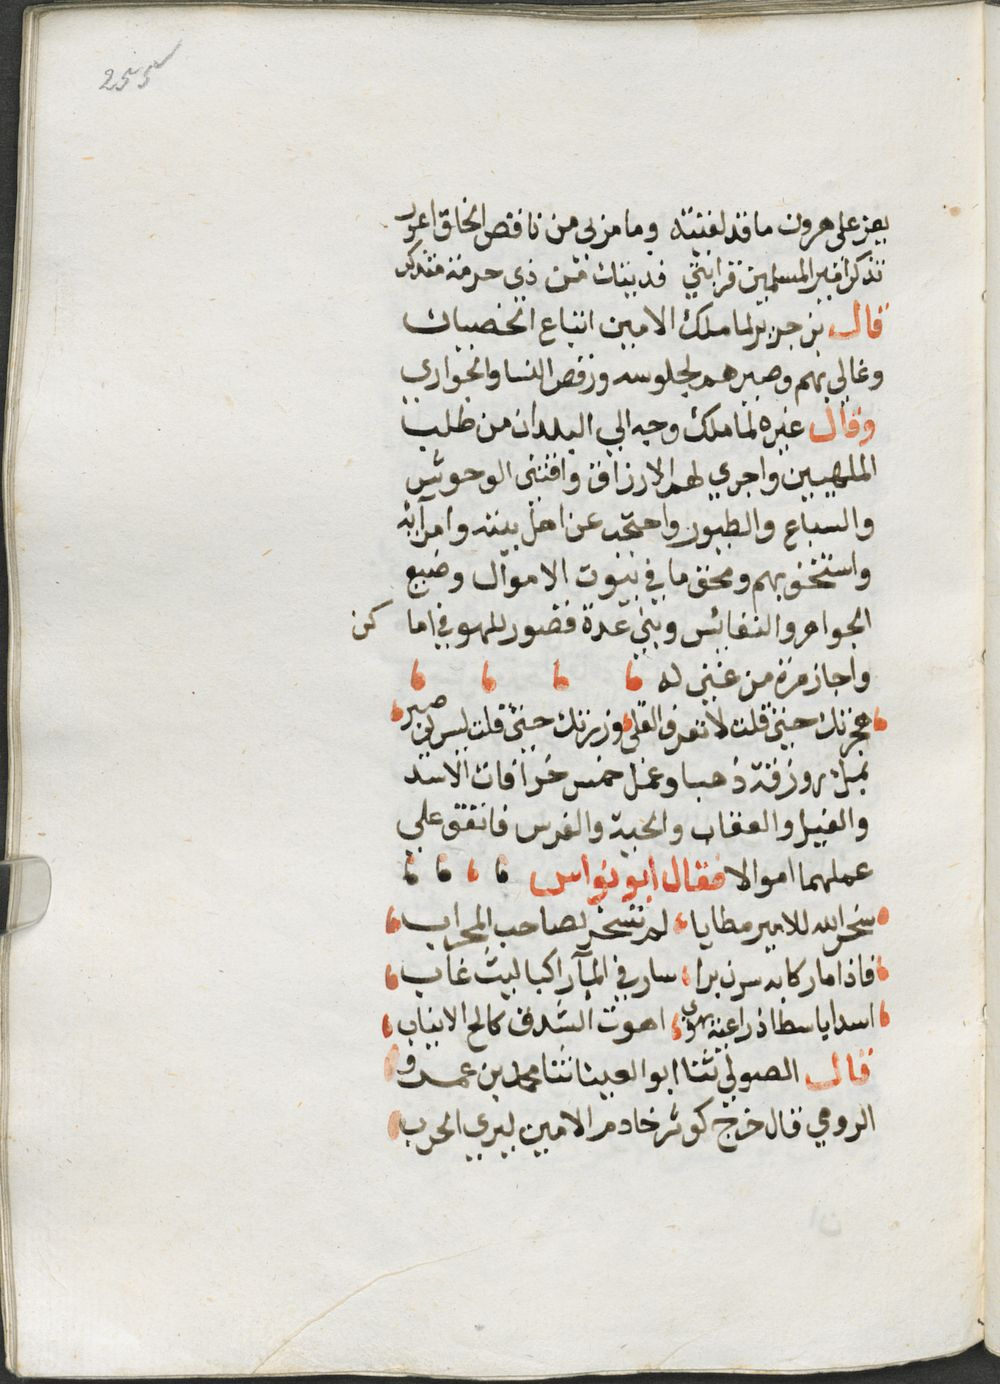 255
يعز على هرون ما قد لقيته وما مر بي من ناقص الخلق اعور
تذكر امير المسلمين قرابتي فديتك من ذي حرمة متذكر
قال بن جرير لما ملك الامين ابتاع الخصيان
وغالي بهم وصيرهم لجلوسه ورفض النسا والجواري
وقال غيره لما ملك وجه الي البلدان من طلب
الملهيين واجري لهم الارزاق واقتني الوحوش
والسباع والطيور واحتجب عن اهل بيته وامرآيه
واستخف بهم ومحق ما في بيوت الاموال وضيع
الجواهر والنفائس وبني عدة قصور للهو في اما كن
واجاز مرة من غني له
هجرتك حتي قلت لا تعرف القلي وزرتك حتي قلت ليس لي صبر
بملء زورقه ذهبا وعمل خمس حراقات الاسد
والفيل والعقاب والحية والفرس فانفق علي
عملهما اموالا فقال ابو نواس
سخر الله للامير مطايا لم تسخر لصاحب المحراب
فاذا ما ركابه سرن برا سار في المآ راكبا ليث غاب
اسدا باسطا ذراعيه يهوي اهوت الشدق كالح الانياب
قال الصولي ثنا ابو العينا ثنا محمد بن عمرو
الرومي قال خرج كوثر خادم الامين ليري الحرب